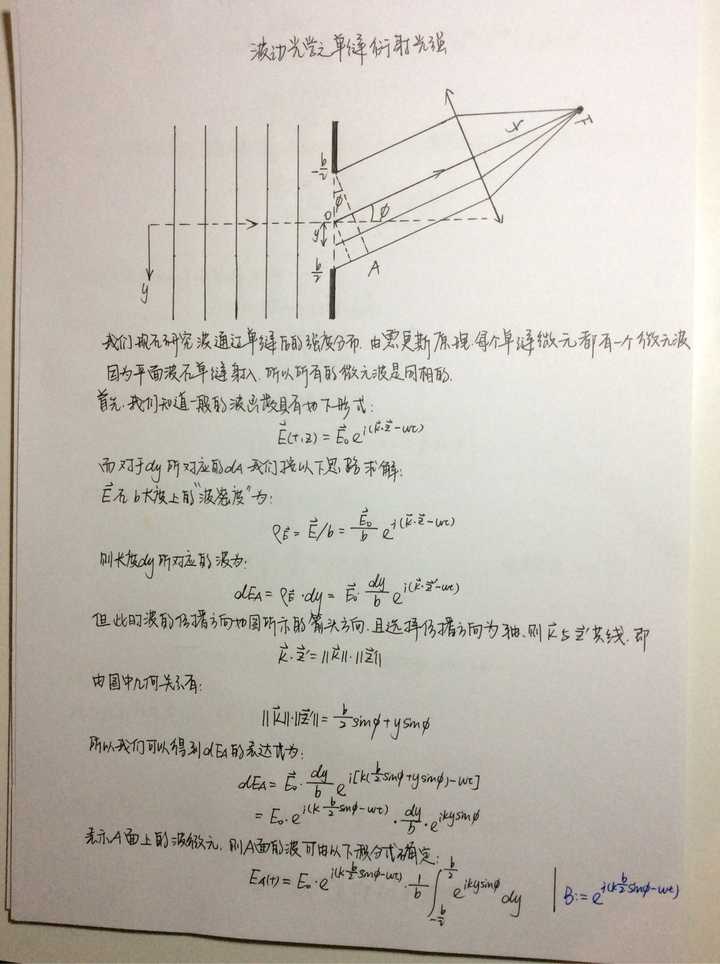 波动光学之单缝衍射光强
-b/2
φ
0
φ
y
b/2
A
y
x
F
我们现在研究波通过单缝后的强度分布. 由惠更斯原理. 每个单缝微元都有一个微元波
因为平面波在单缝射入. 所以所有的微元波是同相的.
首先. 我们知道一般的波函数具有如下形式:
E⃗(t,z) = E⃗₀ e^{i(k⃗·z⃗-ωt)}
而对于dy所对应的dA 我们按以下思路求解:
E⃗在b长度上的"波密度"为:
ρ_E⃗ = E⃗/b = E⃗₀/b e^{i(k⃗·z⃗-ωt)}
则长度dy所对应的波为:
dE_A = ρ_E⃗ · dy = E⃗₀ · dy/b e^{i(k⃗·z⃗'-ωt)}
但此时波的传播方向如图所示的箭头方向. 且选择传播方向为轴. 则 k⃗与z⃗'共线. 即
k⃗·z⃗' = ||k⃗||·||z⃗'||
由图中几何关系有:
||k⃗||·||z⃗'|| = b/2 sinφ + y sinφ
所以我们可以得到dE_A的表达式为:
dE_A = E⃗₀ · dy/b e^{i[k(b/2 sinφ+y sinφ)-ωt]}
= E₀ · e^{i(k b/2 sinφ-ωt)} · dy/b · e^{iky sinφ}
表示A面上的波微元. 则A面的波可由以下积分式确定:
E_A(t) = E₀ · e^{i(k b/2 sinφ-ωt)} · 1/b ∫_{-b/2}^{b/2} e^{iky sinφ} dy | B := e^{i(k b/2 sinφ-ωt)}